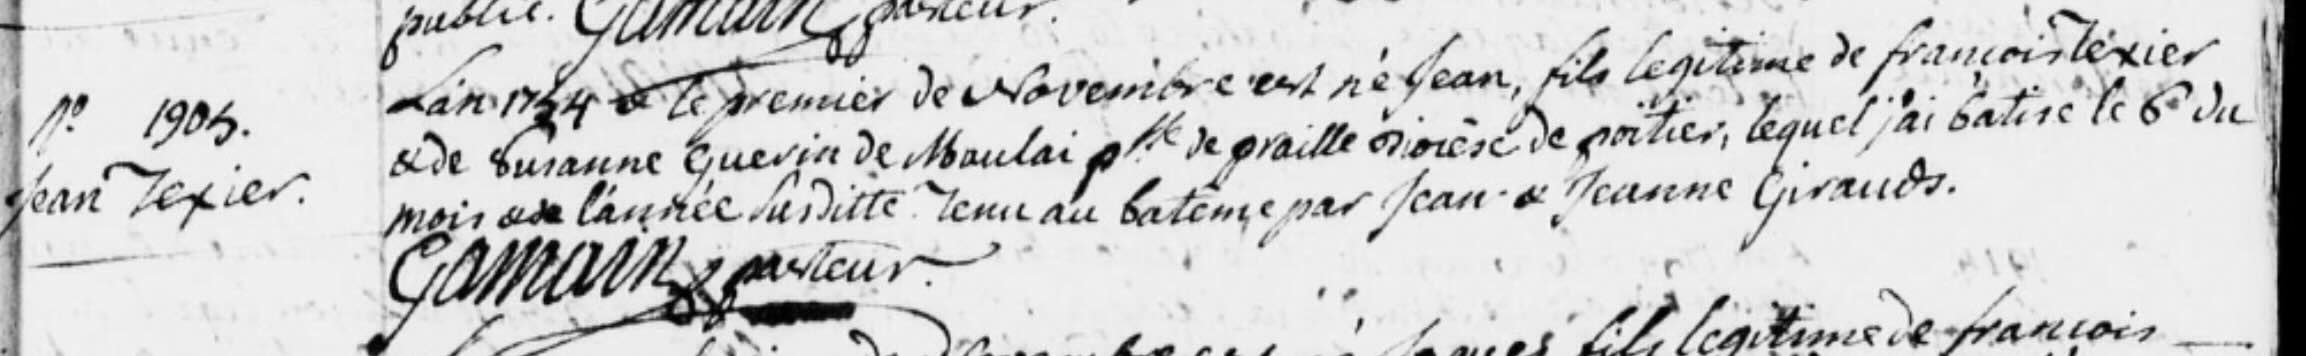 public. Gamain pasteur.
N.o 1905.
Jean Texier.
L'an 1754 & le premier de Novembre est né Jean, fils legitime de francois Texier
& de Susanne Guerin de Moulai psse de praille diocèse de poitier, lequel j'ai batisé le 6e du
mois & de l'année susditte. Tenu au batême par Jean & Jeanne Girauds.
Gamain pasteur.
fils legitime de francois